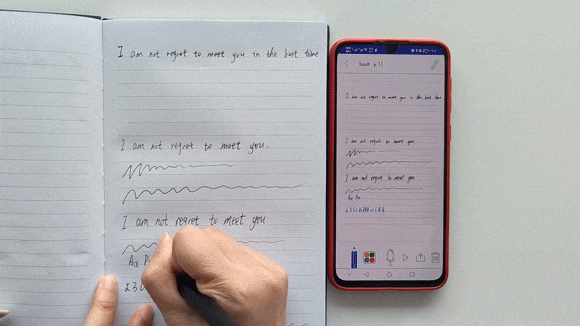 I am not regret to meet you in the best time
I am not regret to meet you.
I am not regret to meet you
book p.11
I am not regret to meet you in the best time
I am not regret to meet you.
I am not regret to meet you